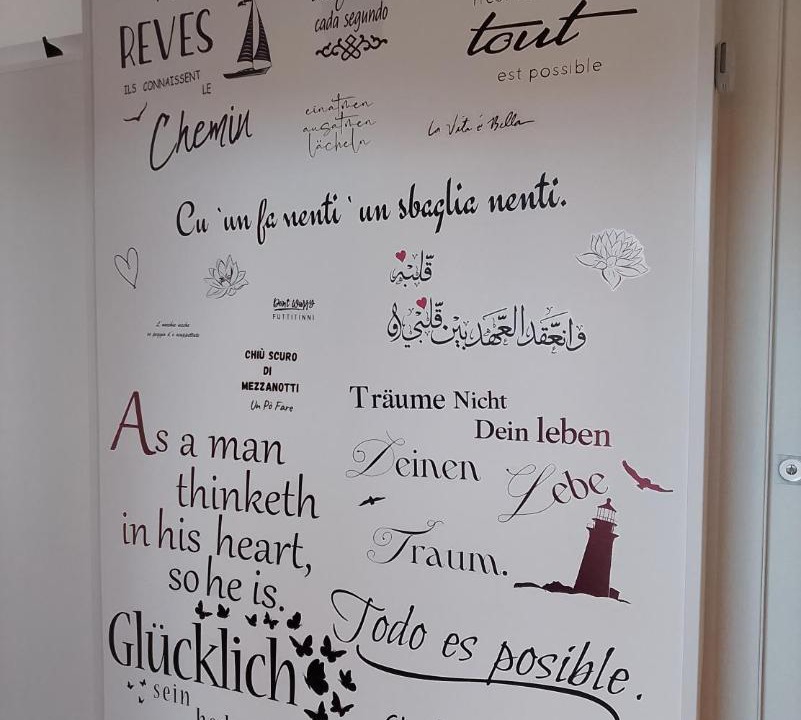 REVES
ILS CONNAISSENT
LE
Chemin
cada segundo
tout
est possible
einatmen
ausatmen
lächeln
La Vita é Bella
Cu 'un fa nenti 'un sbaglia nenti.
قلبه
وانعقد العهد بين قلبي و
Dont Worry
FUTTITINNI
CHIÙ SCURO
DI
MEZZANOTTI
Un Pò Fare
As a man
thinketh
in his heart,
so he is.
Träume Nicht
Dein leben
Deinen Lebe
Traum.
Glücklich
sein
Todo es posible.